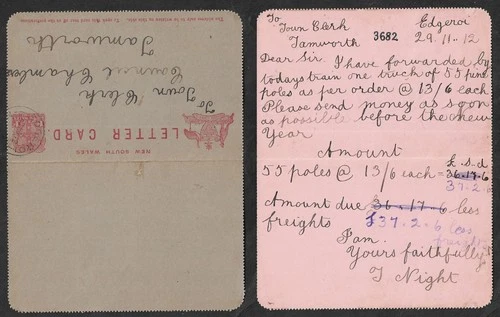 The address only to be written on this side.
To open tear off the perforated edge.
NEW SOUTH WALES
LETTER CARD.
To
Town Clerk
Council Chambers
Tamworth
To Edgeroi
Town Clerk 3682 29.11.12
Tamworth
Dear Sir. I have forwarded by
todays train one truck of 55 pine
poles as per order @ 13/6 each
Please send money as soon
as possible before the new
Year
Amount
£. s. d
55 poles @ 13/6 each = 36.17.6
37.2.6
Amount due 36.17.6 less
freights £37.2.6 less
freights
I am.
Yours faithfully
T Night